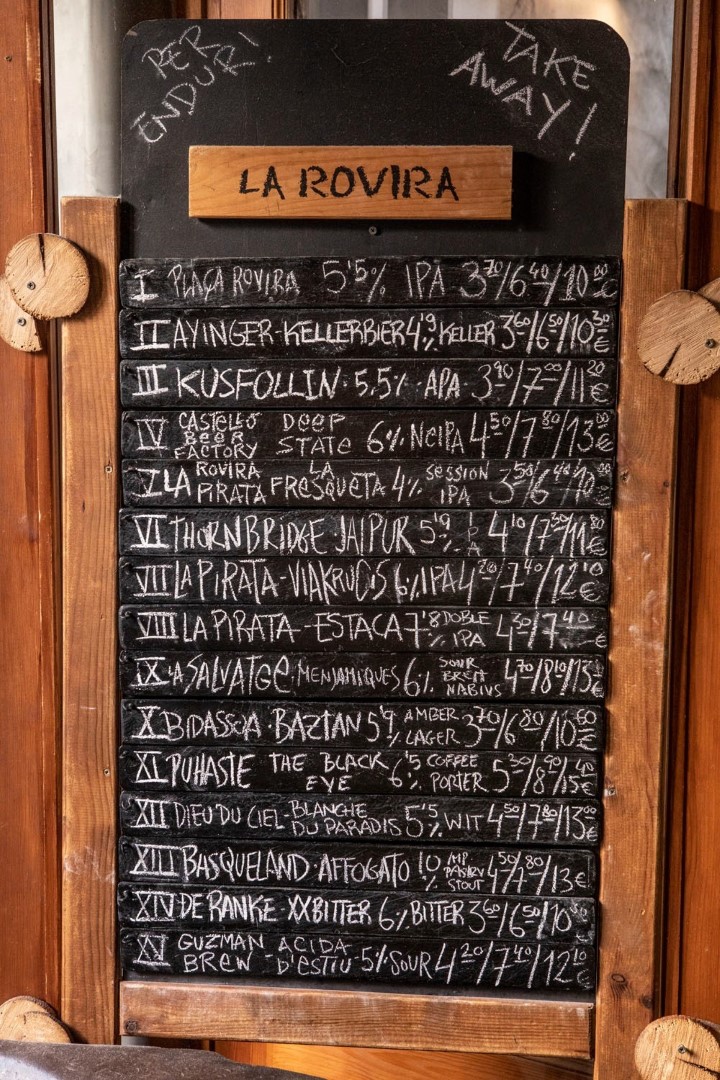 PER ENDUR!
TAKE AWAY!
LA ROVIRA
I PLAÇA ROVIRA 5'5% IPA 3'70/6'40/10'00€
II AYINGER-KELLERBIER 4'9% KELLER 3'60/6'50/10'30€
III KUSFOLLIN · 5,5% · APA · 3'90/7'00/11'20€
IV CASTELLÓ BEER FACTORY DEEP STATE 6% NEIPA 4'50/7'80/13'00€
V LA ROVIRA PIRATA LA FRESQUETA 4% SESSION IPA 3'50/6'40/10€
VI THORNBRIDGE · JAIPUR 5'9% IPA 4'10/7'30/11'80€
VII LA PIRATA-VIAKRUCIS 6% IPA 4'20/7'40/12'10€
VIII LA PIRATA-ESTACA 7'8% DOBLE IPA 4'30/7'40 €
IX LA SALVATGE · MENJAMIQUES 6% SOUR BRETT NABIUS 4'70/8'10/13€
X BIDASSOA BAZTAN 5'9% AMBER LAGER 3'70/6'80/10'60€
XI PUHASTE THE BLACK EYE 6'5% COFFEE PORTER 5'30/8'90/15'40€
XII DIEU DU CIEL-BLANCHE DU PARADIS 5'5% WIT 4'50/7'80/13'00€
XIII BASQUELAND · AFFOGATO 10% IMP PASTRY STOUT 4'50/7'80/13€
XIV DE RANKE · XXBITTER 6% BITTER 3'60/6'50/10 €
XV GUZMAN BREW - ACIDA D'ESTIU - 5% SOUR 4'20/7'40/12'10€